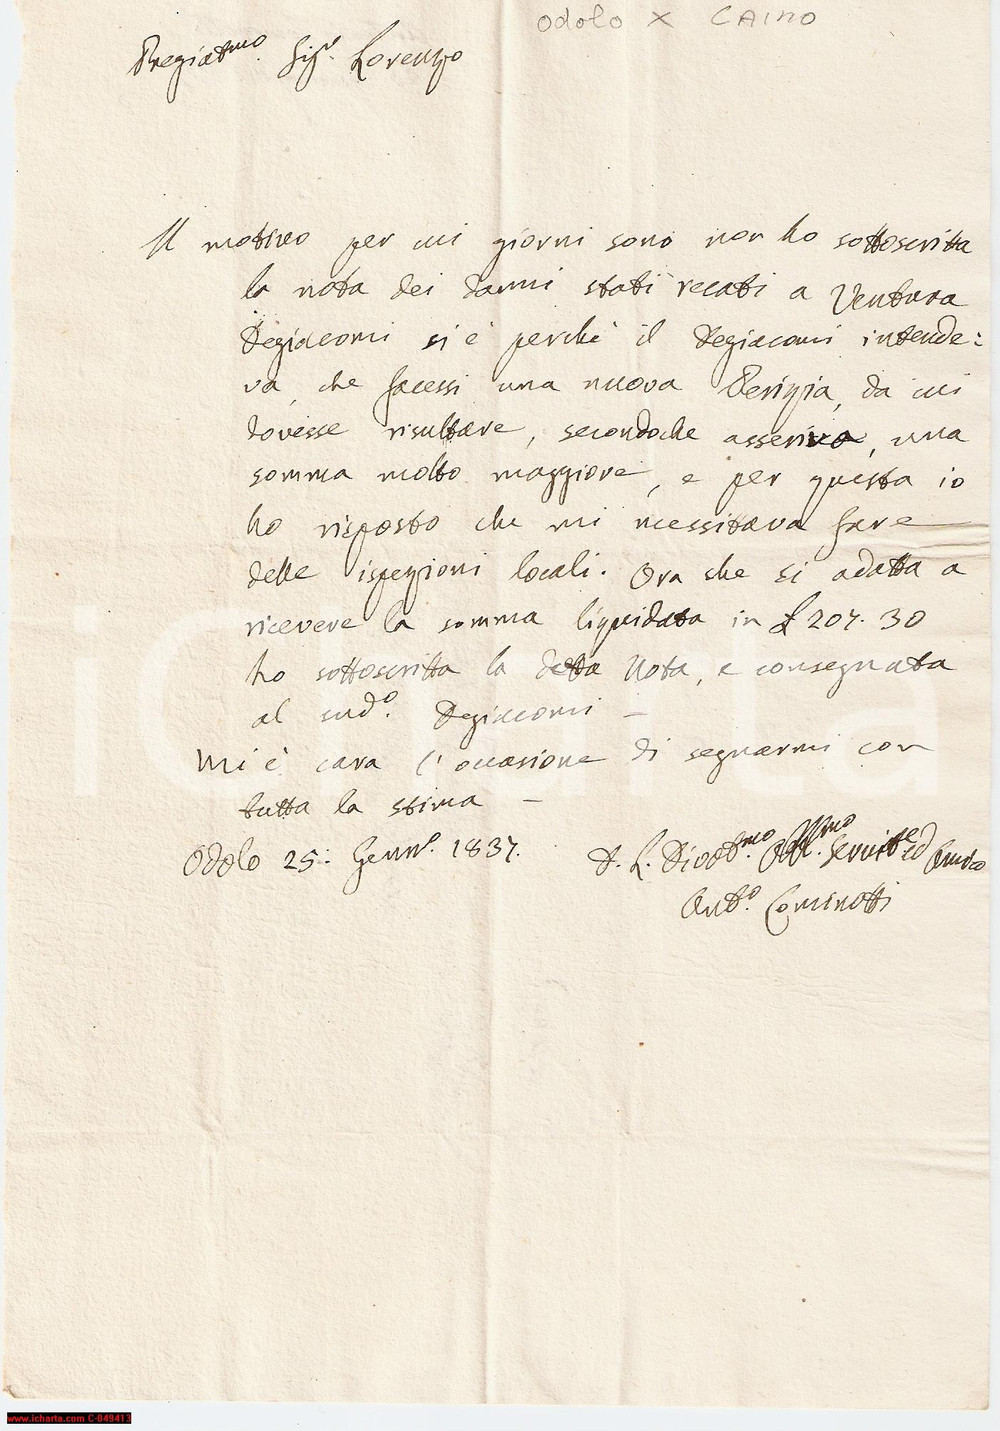 odolo x CAINO
Pregiat.mo Sig.r Lorenzo
Il motivo per cui giorni sono non ho sottoscritta
la nota dei danni stati recati a Ventura
Degiacomi si è perchè il Degiacomi intende:
va, che facessi una nuova Perizia, da cui
dovesse risultare, secondoche asseriva, una
somma molto maggiore, e per questa io
ho risposto che mi necessitava fare
delle ispezioni locali. Ora che si adatta a
ricevere la somma liquidata in £ 207.30
ho sottoscritta la detta Nota, e consegnata
al sud.o Degiacomi –
Mi è cara l'occasione di segnarmi con
tutta la stima –
Odolo 25: Genn.o 1837.
D. L. Divot.mo Obbl.mo Servit.e ed Amico
Ant.o Cominotti
www.icharta.com C-049413
iCharta